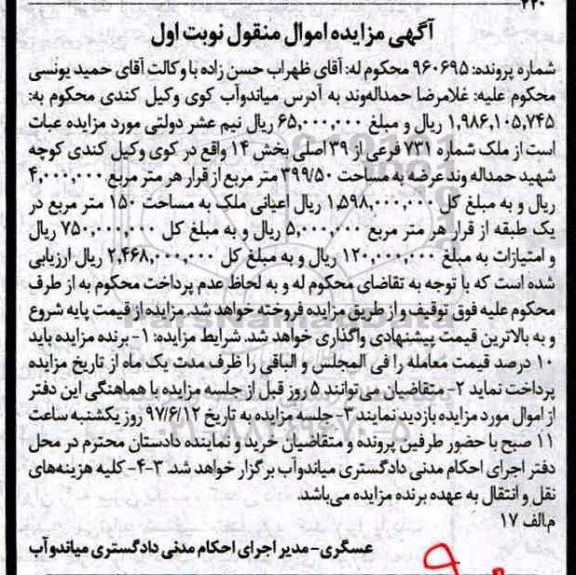 ۲۲۰
آگهی مزایده اموال منقول نوبت اول
شماره پرونده: ۹۶۰۶۹۵ محکوم له: آقای ظهراب حسن زاده با وکالت آقای حمید یونسی
محکوم علیه: غلامرضا حمداله‌وند به آدرس میاندوآب کوی وکیل کندی محکوم به:
۱,۹۸۶,۱۰۵,۷۴۵ ریال و مبلغ ۶۵,۰۰۰,۰۰۰ ریال نیم عشر دولتی مورد مزایده عبات
است از ملک شماره ۷۳۱ فرعی از ۳۹ اصلی بخش ۱۴ واقع در کوی وکیل کندی کوچه
شهید حمداله وند عرضه به مساحت ۳۹۹/۵۰ متر مربع از قرار هر متر مربع ۴,۰۰۰,۰۰۰
ریال و به مبلغ کل ۱,۵۹۸,۰۰۰,۰۰۰ ریال اعیانی ملک به مساحت ۱۵۰ متر مربع در
یک طبقه از قرار هر متر مربع ۵,۰۰۰,۰۰۰ ریال و به مبلغ کل ۷۵۰,۰۰۰,۰۰۰ ریال
و امتیازات به مبلغ ۱۲۰,۰۰۰,۰۰۰ ریال و به مبلغ کل ۲,۴۶۸,۰۰۰,۰۰۰ ریال ارزیابی
شده است که با توجه به تقاضای محکوم له و به لحاظ عدم پرداخت محکوم به از طرف
محکوم علیه فوق توقیف و از طریق مزایده فروخته خواهد شد. مزایده از قیمت پایه شروع
و به بالاترین قیمت پیشنهادی واگذاری خواهد شد. شرایط مزایده: ۱- برنده مزایده باید
۱۰ درصد قیمت معامله را فی المجلس و الباقی را ظرف مدت یک ماه از تاریخ مزایده
پرداخت نماید ۲- متقاضیان می توانند ۵ روز قبل از جلسه مزایده با هماهنگی این دفتر
از اموال مورد مزایده بازدید نمایند ۳- جلسه مزایده به تاریخ ۹۷/۶/۱۲ روز یکشنبه ساعت
۱۱ صبح با حضور طرفین پرونده و متقاضیان خرید و نماینده دادستان محترم در محل
دفتر اجرای احکام مدنی دادگستری میاندوآب برگزار خواهد شد. ۳-۴- کلیه هزینه‌های
نقل و انتقال به عهده برنده مزایده می‌باشد.
م‌الف ۱۷
عسگری- مدیر اجرای احکام مدنی دادگستری میاندوآب